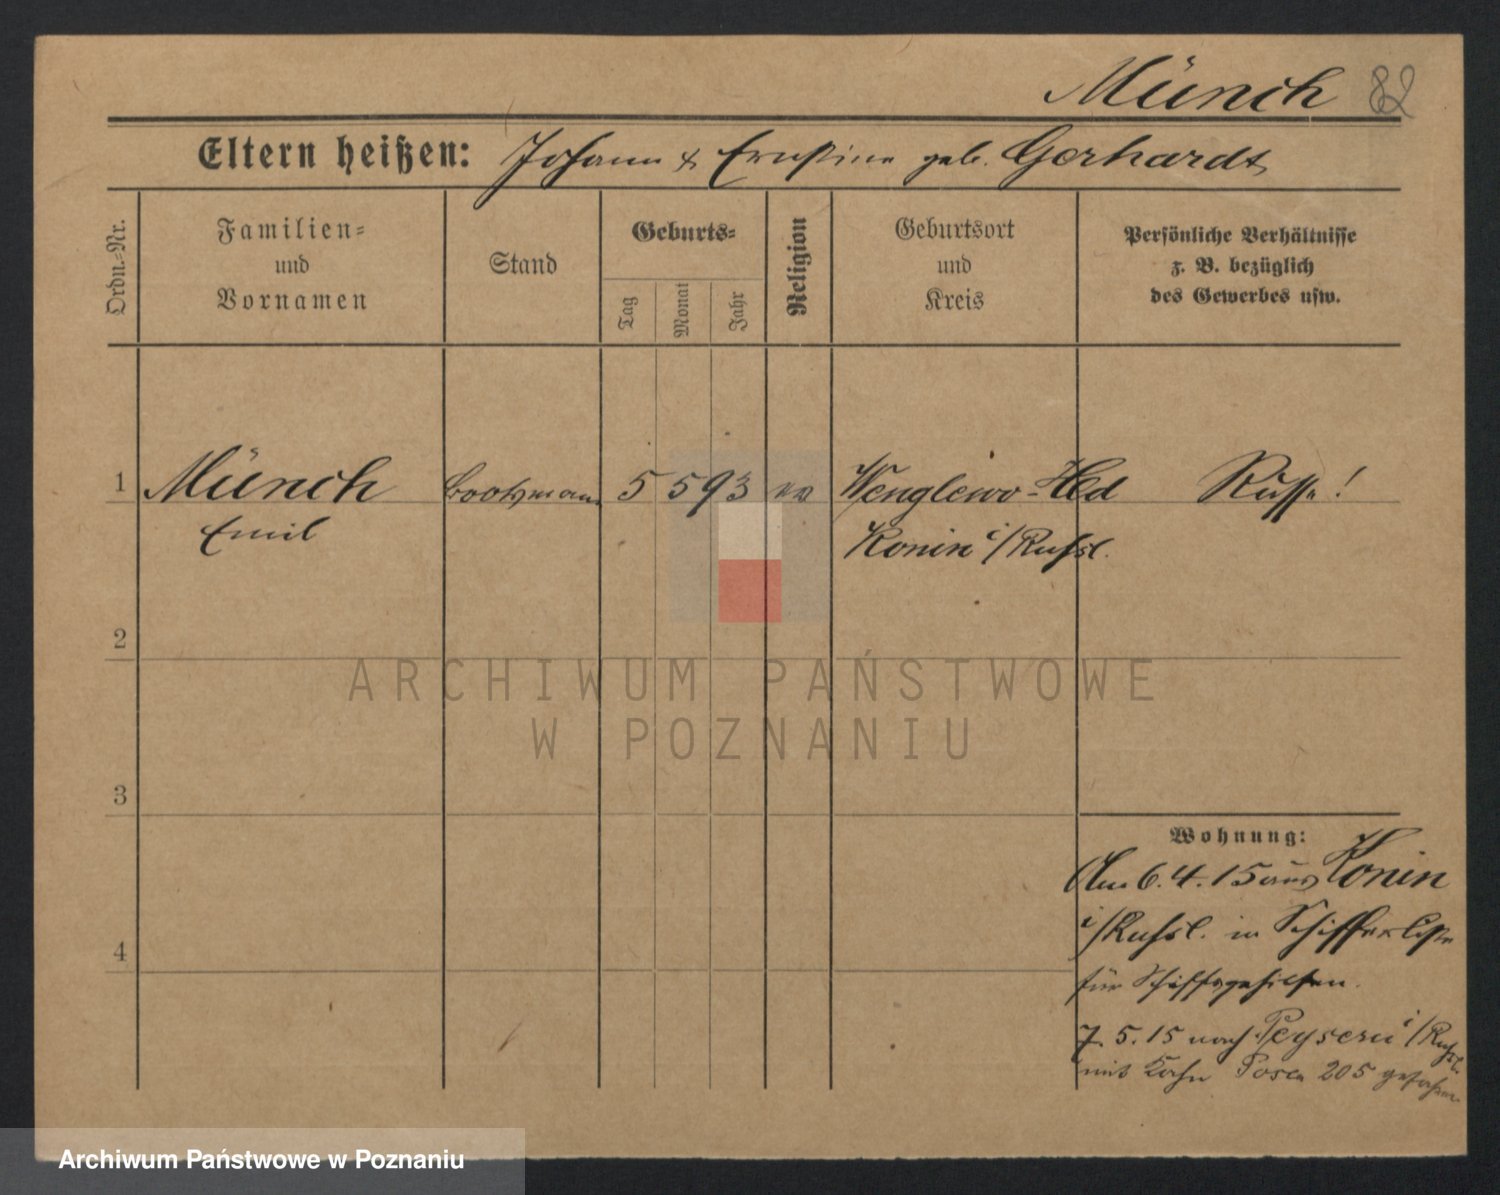 Münch 82
Eltern heißen: Johann & Ernstine geb. Gerhardt
Ordn.-Nr.
Familien-
und
Vornamen
Stand
Geburts-
Tag
Monat
Jahr
Religion
Geburtsort
und
Kreis
Persönliche Verhältnisse
z. B. bezüglich
des Gewerbes usw.
1 Münch Bootsmann 5 5 93 ev Wenglewo-Hld Russe!
Emil Konin i/Russl.
2
ARCHIWUM PAŃSTWOWE
W POZNANIU
3
Wohnung:
Am 6.4.15 aus Konin
i/Russl. in Schifferliste
4
für Schiffsgehilfen.
7.5.15 nach Peysern i/Russl.
mit Kahn Posen 205 gefahren
Archiwum Państwowe w Poznaniu